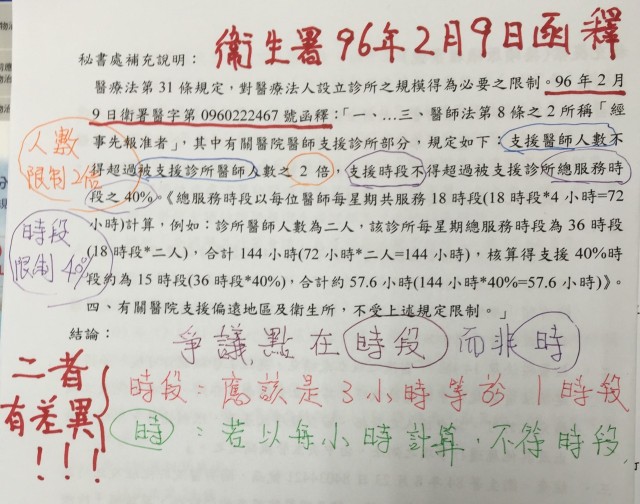 衛生署96年2月9日函釋
秘書處補充說明：
醫療法第31條規定，對醫療法人設立診所之規模得為必要之限制。96年2月
9日衛署醫字第0960222467號函釋：「一、…三、醫師法第8條之2所稱「經
事先報准者」，其中有關醫院醫師支援診所部分，規定如下：支援醫師人數不
得超過被支援診所醫師人數之2倍，支援時段不得超過被支援診所總服務時
段之40%。《總服務時段以每位醫師每星期共服務18時段(18時段*4小時=72
小時)計算，例如：診所醫師人數為二人，該診所每星期總服務時段為36時段
(18時段*二人)，合計144小時(72小時*二人=144小時)，核算得支援40%時
段約為15時段(36時段*40%)，合計約57.6小時(144小時*40%=57.6小時)》。
四、有關醫院支援偏遠地區及衛生所，不受上述規定限制。」
結論：
人數
限制2倍
時段
限制40%
爭議點在時段而非時
二者
有差異
!!!
時段：應該是3小時等於1時段
時：若以每小時計算，不等時段